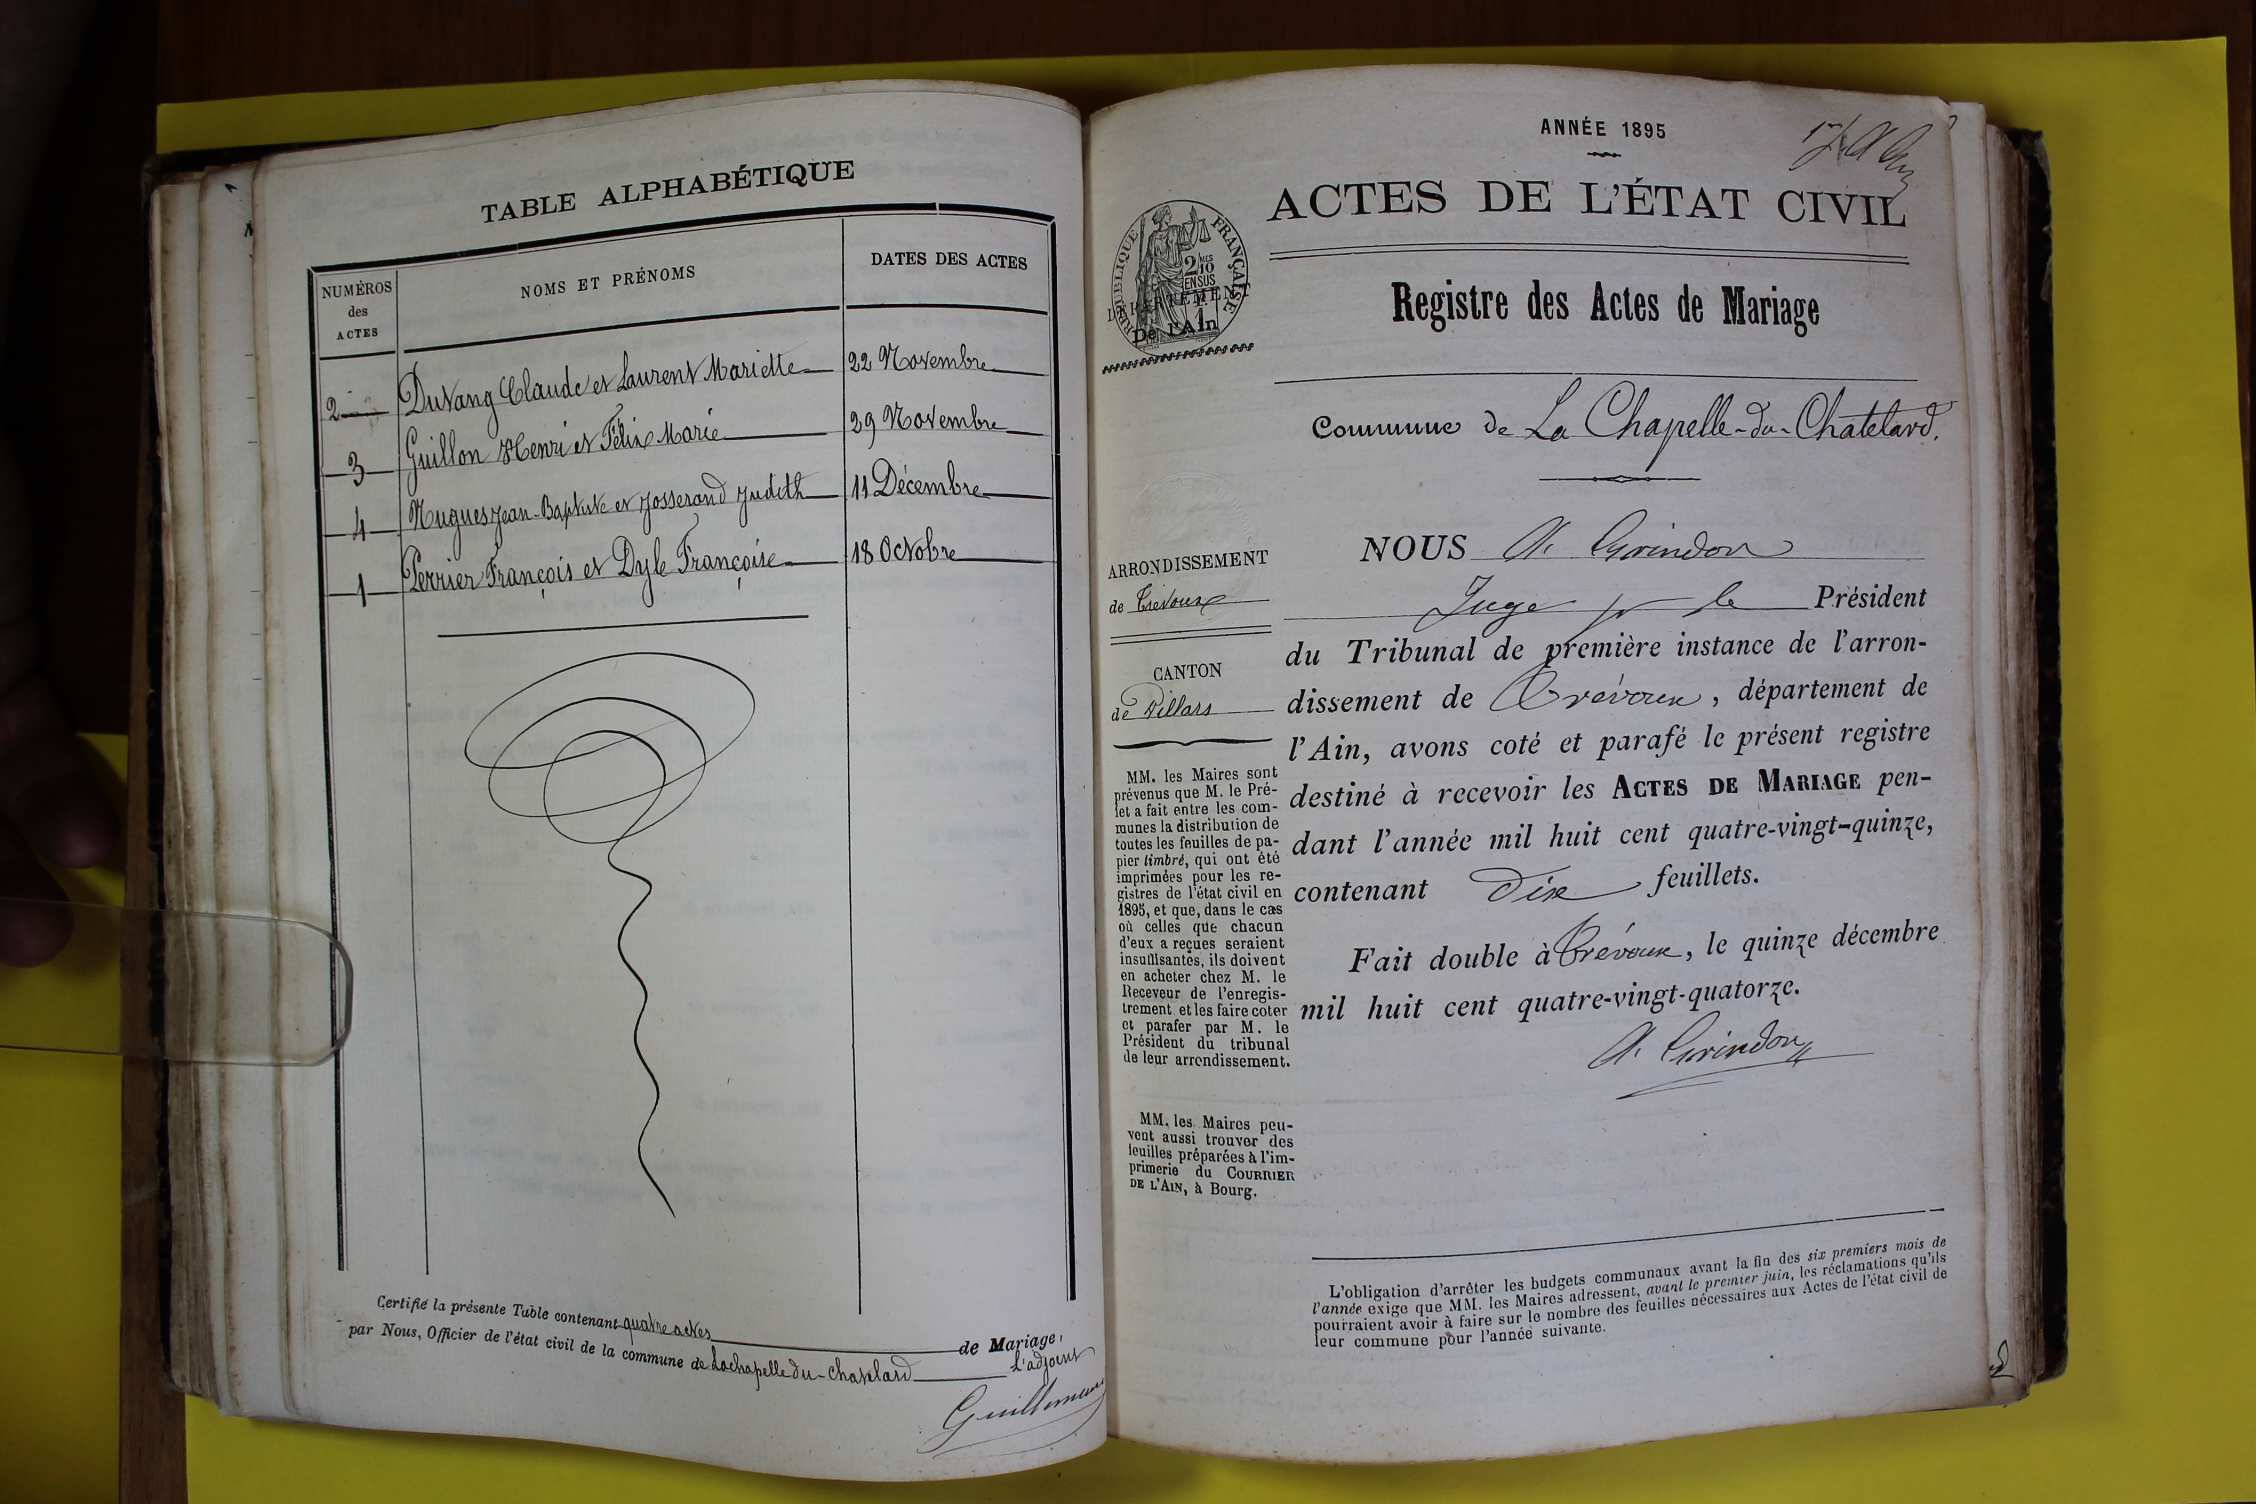 TABLE ALPHABÉTIQUE
NUMÉROS
des
ACTES
NOMS ET PRÉNOMS
DATES DES ACTES
2 Duvang Claude et Laurent Mariette 22 Novembre
3 Guillon Henri et Félix Marie 29 Novembre
4 Hugues Jean-Baptiste et Josserand Judith 11 Décembre
1 Perrier François et Dyle Françoise 18 Octobre
Certifié la présente Table contenant quatre actes de Mariage,
par Nous, Officier de l'état civil de la commune de Lachapelle du-Chatelard L'adjoint
ANNÉE 1895
ACTES DE L'ÉTAT CIVIL
RÉPUBLIQUE FRANÇAISE
2/10
EN SUS
DÉPARTEMENT
De l'Ain
Registre des Actes de Mariage
Commune de La Chapelle-du-Chatelard.
ARRONDISSEMENT
de Trévoux
CANTON
de Villars
MM. les Maires sont
prévenus que M. le Pré-
fet a fait entre les com-
munes la distribution de
toutes les feuilles de pa-
pier timbré, qui ont été
imprimées pour les re-
gistres de l'état civil en
1895, et que, dans le cas
où celles que chacun
d'eux a reçues seraient
insuffisantes, ils doivent
en acheter chez M. le
Receveur de l'enregis-
trement et les faire coter
et parafer par M. le
Président du tribunal
de leur arrondissement.
MM. les Maires peu-
vent aussi trouver des
feuilles préparées à l'im-
primerie du COURRIER
DE L'AIN, à Bourg.
NOUS A. Grindon
Juge pr le Président
du Tribunal de première instance de l'arron-
dissement de Trévoux, département de
l'Ain, avons coté et parafé le présent registre
destiné à recevoir les ACTES DE MARIAGE pen-
dant l'année mil huit cent quatre-vingt-quinze,
contenant Dix feuillets.
Fait double à Trévoux, le quinze décembre
mil huit cent quatre-vingt-quatorze.
A. Grindon
L'obligation d'arrêter les budgets communaux avant la fin des six premiers mois de
l'année exige que MM. les Maires adressent, avant le premier juin, les réclamations qu'ils
pourraient avoir à faire sur le nombre des feuilles nécessaires aux Actes de l'état civil de
leur commune pour l'année suivante.